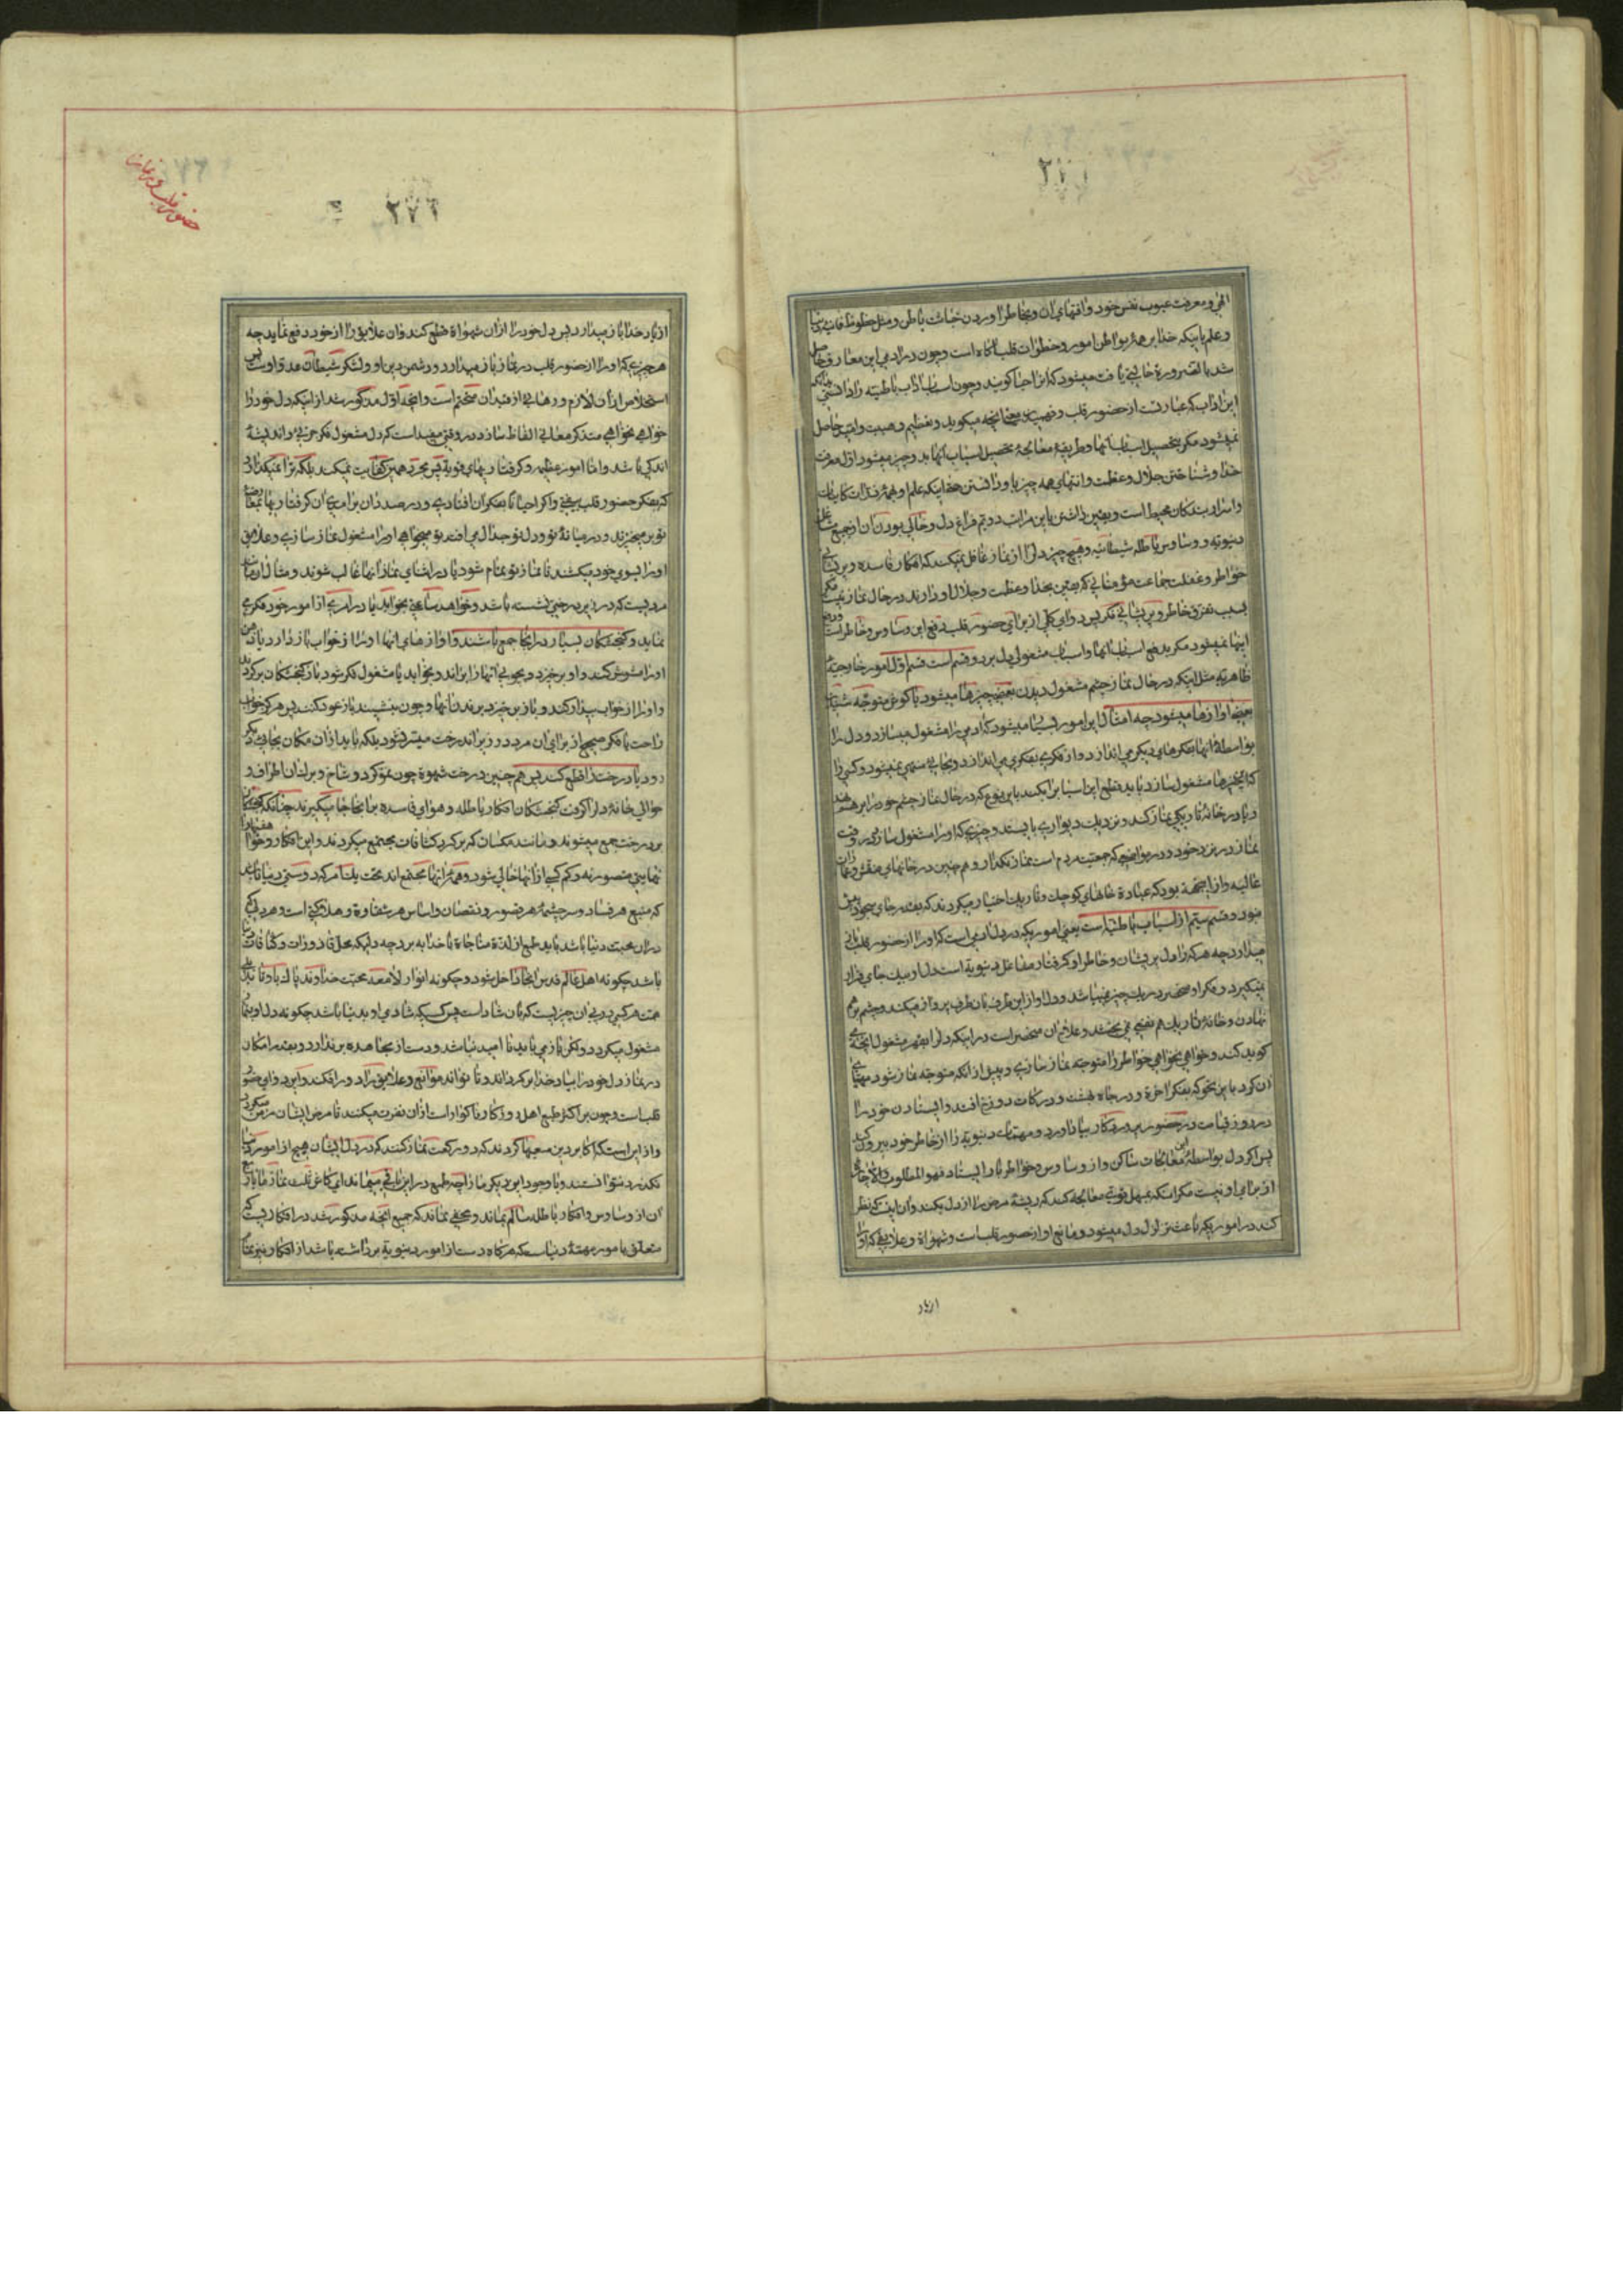 الهی و معرفت عیوب نفس خود و افتهای ان و بخاطر اوردن خباثت باطن و میل حظوظ فانیه دنیا
و علم باینکه خدا بر همهٔ بواطن امور و خطرات قلب اکاه است و چون در ادمی این معارف حاصل
شد بالضروره حالتی یافت میشود که انرا حیا کویند و چون اسباب اداب باطنیه را دانستی
این اداب که عبارتست از حضور قلب و فهمیدن معنی انچه میکوید و تعظیم و هیبت و حاصل
نمیشود مکر بتحصیل اسباب انها و طریقهٔ معالجهٔ تحصیل اسباب انها بدو چیز میشود اول معرفت
خدا و شناختن جلال و عظمت و انتهای همه چیز باو و دانستن اینکه علم او همهٔ ذرات کاینات
و اسرار بندکان محیط است و یقین داشتن باین مراتب دویم فراغ دل و خالی بودن ان از جمیع مشاغل
دنیویه و وساوس باطله شیطانیه و هیچ چیز دل را از نماز غافل نمیکند که افکار فاسده و پریشانی
خواطر و غفلت جماعت مؤمنانی که یقین بخدا و عظمت و جلال او دارند در حال نماز نیست مکر
بسبب تفرق خاطر و پریشانی فکر پس دوای کلی از برای حضور قلب دفع این وساوس و خاطر است و دفع
اینها نمیشود مکر بدفع اسباب انها و اسباب مشغولی دل بر دو قسم است قسم اول امور خارجیه
ظاهریه مثل اینکه در حال نماز چشم مشغول دیدن بعضی چیزها میشود یا کوش متوجه شنیدن
بعضی اوازها میشود چه امثال این امور بسا میشود که ادمی را مشغول میسازد و دل را
بواسطهٔ انها بفکرهای دیکر می اندازد و از فکری بفکری می اندازد و بجائی منتهی نمیشود و کسی را
که اینچیزها مشغول سازد باید قطع این اسباب را بکند باین نوع که در حال نماز چشم خود را بر هم نهد
و یا در خانهٔ تاریکی نماز کند و نزدیک دیواری بایستد و چیزی که او را مشغول سازد در وقت
نماز در نزد خود و در مواضعی که جمعیت مردم است نماز نکذارد و هم چنین در خانهای منقش و عمارات
عالیه و از اینجهة بود که عباد در خانهای کوچک و تاریک اختیار میکردند که بقدر جای سجود بیش
نبود و قسم سیّم از اسباب باطنیه است یعنی اموریکه در دل ادمی است که او را از حضور قلب باز
میدارد چه هر که را دل پریشان و خاطر او کرفتار مشاغل دنیویه است دل او بیک جای قرار
نمیکیرد و فکر او منحصر در یک چیز نمیباشد و دل او از این طرف بان طرف پرواز میکند و چشم بر هم
نهادن و خانهٔ تاریک هم نفعی نمی بخشد و علاج ان منحصر است در اینکه دل را بقهر مشغول انچه میکوید
کوید کند و خواهی نخواهی خواطر را متوجه نماز سازد و پیش از انکه متوجه نماز شود مهیای
ان کردد باین نحو که بفکر اخرة و درجاه بهشت و درکات دوزخ افتد و ایستادن خود را
در روز قیامت در حضور پروردکار بیاد اورد و مهمات دنیویه را از خاطر خود بیرون کند
پس اکر دل بواسطهٔ این معالجات ساکن و از وساوس و خواطر باز ایستاد فهو المطلوب والا چارهٔ
از برای او نیست مکر انکه بمسهل قوی معالجه کند که ریشهٔ مرض را از دل بکند و ان اینست که نظر
کند در اموریکه باعث تزلزل دل میشود و مانع او از حضور قلب است و شهواة و علایقی که او را
از یاد
حضور قلب در نماز
٢٧٦
از یاد خدا باز میدارد پس دل خود را از ان شهواة قطع کند و ان علایق را از خود دفع نماید چه
هر چیزی که او را از حضور قلب در نماز باز میدارد دشمن دین او و لشکر شیطان عدو اوست پس
استخلاص از ان لازم و رهایی از قید ان متحتم است و انچه اول مذکور شد از اینکه دل خود را
خواهی نخواهی متذکر معانی الفاظ سازد در وقتی مفید است که دل مشغول فکر جزئی و اندیشهٔ
اندکی باشد و اما امور عظیمه و کرفتاریهای قویة پس مجرد همین کفایت نمیکند بلکه ترا نمیکذارد
که بفکر حضور قلب بیفتی و اکر احیانا بفکر ان افتادی و در صدد ان برامدی ان کرفتاریها بمعارضه
تو بر میخیزند و در میانهٔ تو و دل تو جدال می افتد تو میخواهی او را مشغول نماز سازی و علایق
او را بسوی خود میکشند تا نماز تو تمام شود یا در اثنای نماز انها غالب شوند و مثال ان مانند
مردیست که در زیر درختی نشسته باشد و خواهد ساعتی بخوابد یا در امری از امور خود فکری
نماید و کنجشکان بسیار در انجا جمع باشند و اوازهای انها او را از خواب باز دارد یا ذهن
او را مشوش کند و او برخیزد و بچوبی انها را براند و بخوابد یا مشغول فکر شود باز کنجشکان برکردند
و او را از خواب بیدار کنند و باز برخیزد برندن انها و چون بنشیند باز عود کنند پس هر کز خواب
راحت یا فکر صحیح از برای ان مرد در زیر اندرخت میسر نشود بلکه باید از ان مکان بجای دیکر
رود یا درخت را قطع کند پس هم چنین درخت شهوة چون نمو کرد و شاخ و برک ان اطراف و
حوالی خانهٔ دل را کرفت کنجشکان افکار باطله و هوای فاسده بر انجا جا میکیرند چنانکه کنجشکان
بر درخت جمع میشوند و مانند مکسان که بر کرد کثافات مجتمع میکردند و این افکار و خواطر
نهایتی متصور نه و کم کسی از انها خالی شود و همه انها مجتمع اند تحت یک امر که دوستی دنیا باشد
که منبع هر فساد و سرچشمهٔ هر قصور و نقصان و اساس هر شقاوة و هلاکتی است و هر دلی که
در ان محبت دنیا باشد باید طمع از لذة مناجاة با خدا به برد چه دلیکه محل قاذورات و کثافات دنیا
باشد چکونه اهل عالم قدس انجا داخل شود و چکونه انوار لامعه محبت خداوند پاک باو تابد
همت هر کس در پی ان چیزیست که بان شاد است پس کسیکه شادی او بدنیا باشد چکونه دل او بنماز
مشغول میکردد و لکن باز می باید نا امید نباشد و دست از مجاهده بر ندارد و بقدر امکان
در نماز دل خود را بیاد خدا بر کرداند و تا تواند موانع و علایق را دور افکند و این دوای حضور
قلب است و چون بر اکثر طبع اهل روزکار ناکوار است از ان نفرت میکنند تا مرض ایشان مزمن میکردد
و از این است که اکابر دین سعیها کردند که دو رکعت نماز کنند که در دل ایشان هیچ از امور دنیا
نکذرد نتوانستند و با وجود این دیکر ما را چه طمع در این باقی میماند ای کاش ثلث نماز ما یا ربع
ان از وساوس و افکار باطله سالم بماند و مخفی نماند که جمیع انچه مذکور شد در افکاریست که
متعلق بامور مهمهٔ دنیاست که هر کاه دست از امور دنیویة برداشته باشد از افکار نیز نجات